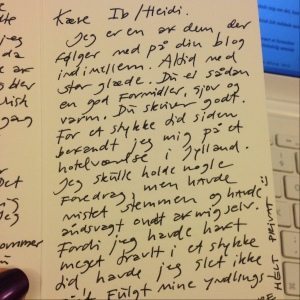 Kære Ib/Heidi.
Jeg er en af dem der
følger med på din blog
indimellem. Altid med
stor glæde. Du er sådan
en god formidler, sjov og
varm. Du skriver godt.
For et stykke tid siden
befandt jeg mig på et
hotelværelse i Jylland.
Jeg skulle holde nogle
foredrag, men havde
mistet stemmen og havde
åndsvagt ondt af mig selv.
Fordi jeg havde haft
meget travlt i et stykke
tid, havde jeg slet ikke
fulgt mine yndlings-
HELT PRIVAT